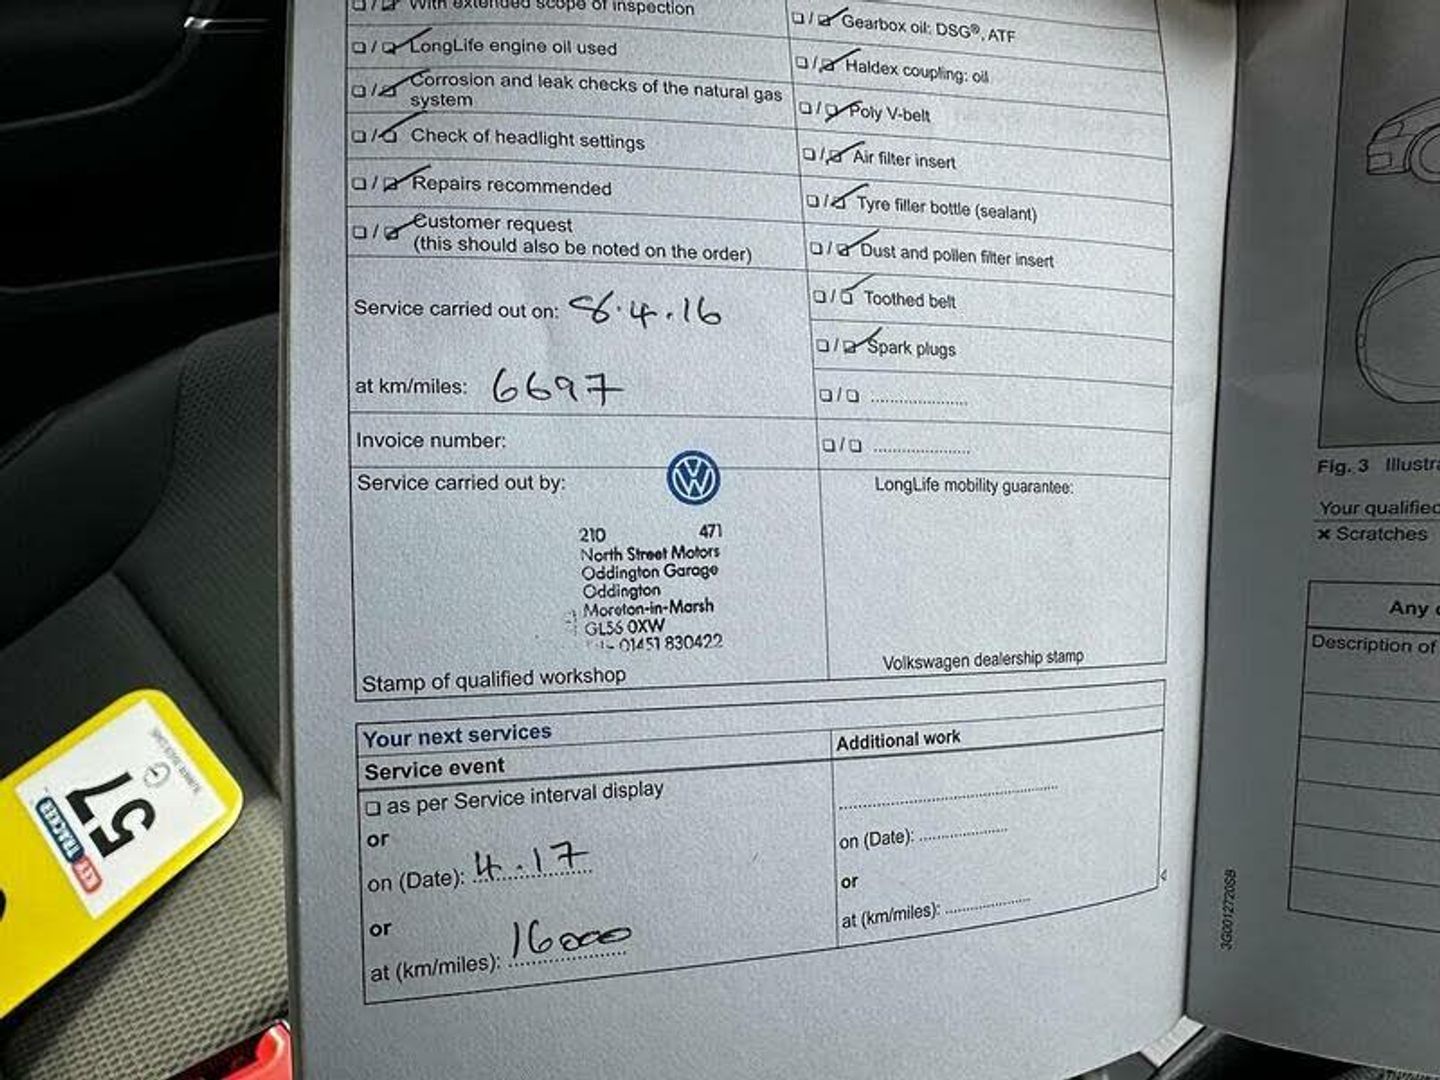 With extended scope of inspection
LongLife engine oil used
Corrosion and leak checks of the natural gas
system
Check of headlight settings
Repairs recommended
Customer request
(this should also be noted on the order)
Service carried out on: 8.4.16
at km/miles: 6697
Invoice number:
Service carried out by:
210 471
North Street Motors
Oddington Garage
Oddington
Moreton-in-Marsh
GL56 0XW
01451 830422
Stamp of qualified workshop
Gearbox oil: DSG®, ATF
Haldex coupling: oil
Poly V-belt
Air filter insert
Tyre filler bottle (sealant)
Dust and pollen filter insert
Toothed belt
Spark plugs
LongLife mobility guarantee:
Volkswagen dealership stamp
Your next services
Service event
as per Service interval display
or
on (Date): 4.17
or
at (km/miles): 16000
Additional work
on (Date):
or
at (km/miles):
3G0012720SB
Fig. 3 Illustra
Your qualified
× Scratches
Any
Description of
57
KEY
TRACKER